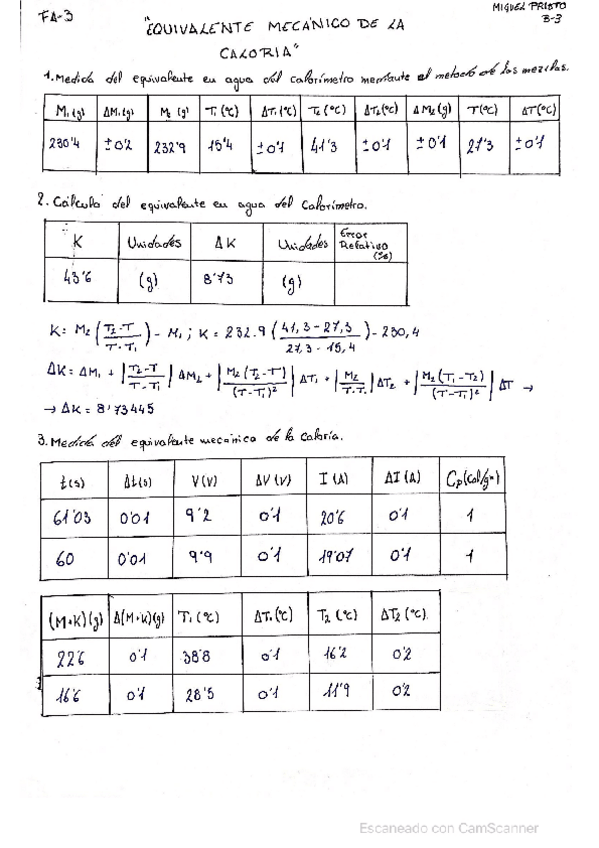 FA-3
MIGUEL PRIETO
B-3
"EQUIVALENTE MECÁNICO DE LA
CALORIA"
1. Medida del equivalente en agua del calorímetro mediante el metodo de las mezclas.
M₁(g) ΔM₁(g) M₂ (g) T₁(ºC) ΔT₁(ºC) T₂ (ºC) ΔT₂(ºC) ΔM₂(g) T(ºC) ΔT(ºC)
230'4 ±0'2 232'9 15'4 ±0'1 41'3 ±0'1 ±0'1 27'3 ±0'1
2. Cálculo del equivalente en agua del calorímetro.
K Unidades ΔK Unidades Error Relativo (%)
43'6 (g) 8'73 (g)
K = M₂ (T₂-T / T-T₁) - M₁ ; K = 232.9 (41,3-27,3 / 27,3-15,4) - 230,4
ΔK = ΔM₁ + |T₂-T / T-T₁| ΔM₂ + |M₂(T₂-T) / (T-T₁)²| ΔT₁ + |M₂ / T-T₁| ΔT₂ + |M₂(T₁-T₂) / (T-T₁)²| ΔT →
→ ΔK = 8'73445
3. Medida del equivalente mecánico de la Caloría.
t(s) Δt(s) V(V) ΔV(V) I(A) ΔI(A) Cp(cal/gº)
61'03 0'01 9'2 0'1 20'6 0'1 1
60 0'01 9'9 0'1 19'07 0'1 1
(M+K)(g) Δ(M+K)(g) T₁(ºC) ΔT₁(ºC) T₂(ºC) ΔT₂(ºC)
22'6 0'1 38'8 0'1 16'2 0'2
16'6 0'1 28'5 0'1 11'9 0'2
Escaneado con CamScanner